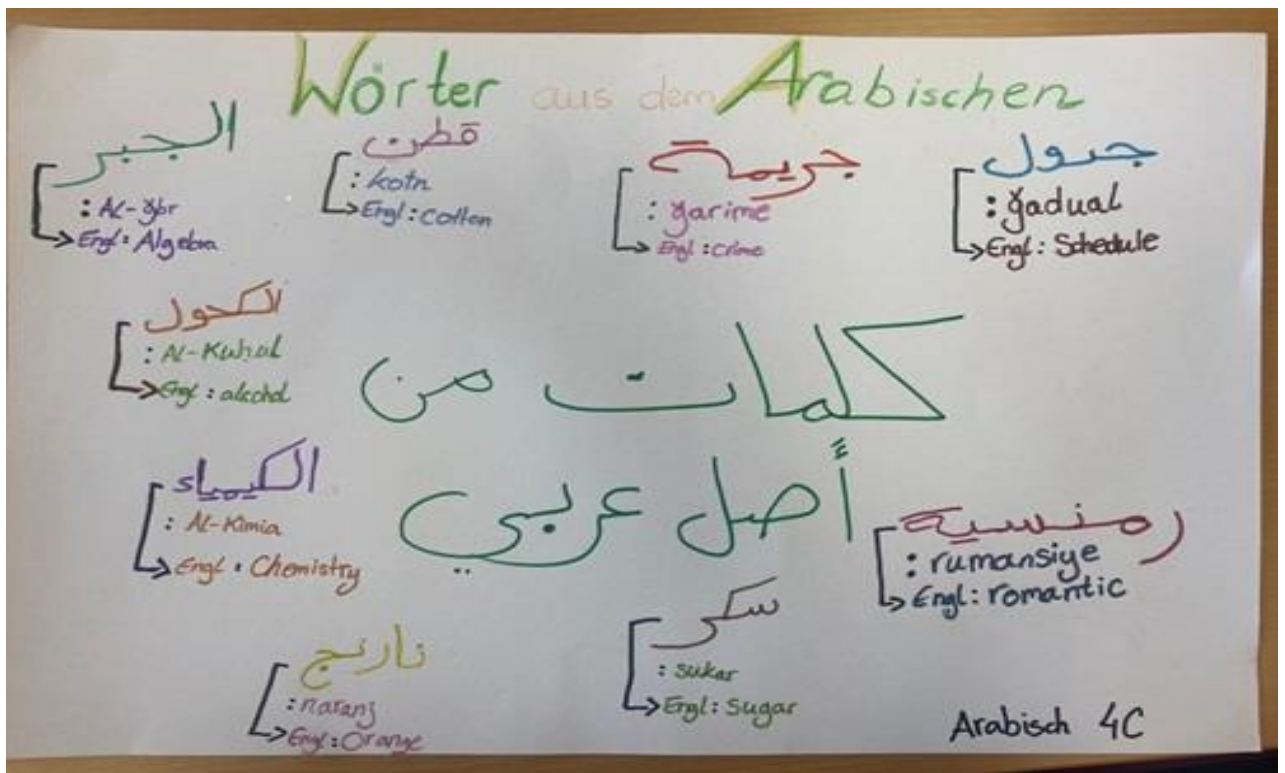 Wörter aus dem Arabischen
الجبر
: Al-ğbr
Engl: Algebra
قطن
: kotn
Engl: cotton
جريمة
: ğarime
Engl: crime
جدول
: ğadual
Engl: Schedule
الكحول
: Al-Kuhul
Engl: alcohol
كلمات من
أصل عربي
الكيمياء
: Al-Kimia
Engl: Chemistry
رمنسية
: rumansiye
Engl: romantic
نارنج
: naranj
Engl: Orange
سكر
: sukar
Engl: Sugar
Arabisch 4C